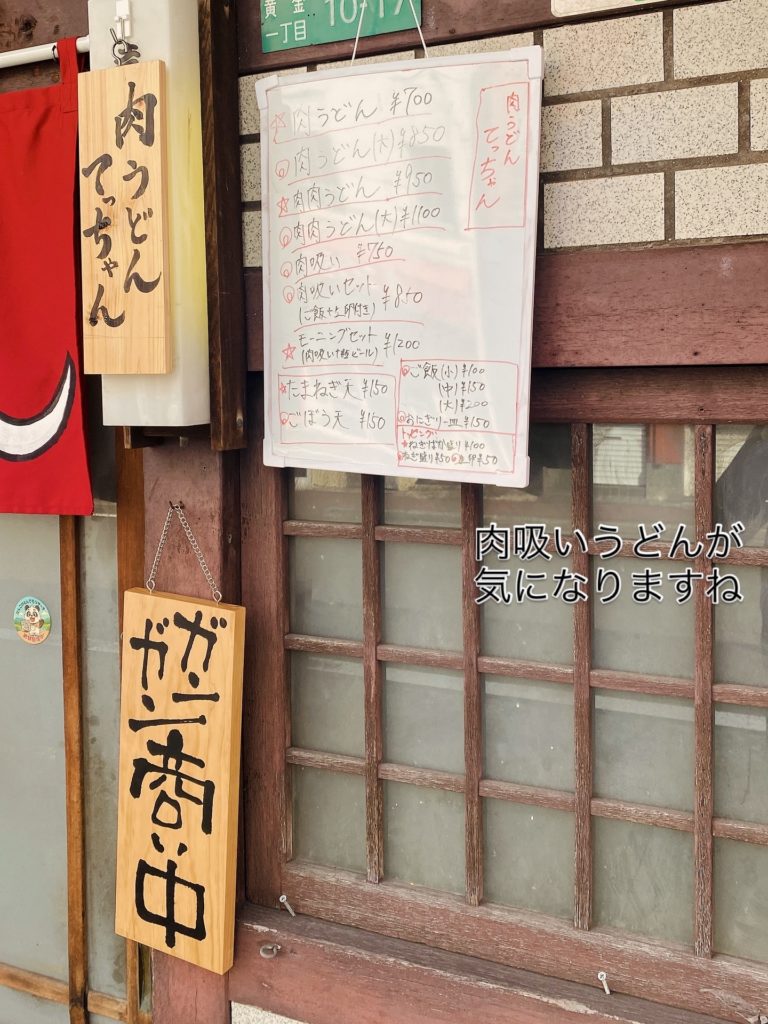 黄金
一丁目
10-17
肉うどん
てっちゃん
肉うどん ¥700
肉うどん(大) ¥850
肉肉うどん ¥950
肉肉うどん(大) ¥1100
肉吸い ¥750
肉吸いセット ¥850
(ご飯+玉卵付き)
モーニングセット ¥1200
(肉吸い+瓶ビール)
たまねぎ天 ¥150
ごぼう天 ¥150
肉うどん
てっちゃん
ご飯(小) ¥100
(中) ¥150
(大) ¥200
おにぎり一皿 ¥150
トッピング
ねぎばか盛り ¥100
ねぎ盛り ¥50 玉卵 ¥50
ガンガン商い中
肉吸いうどんが
気になりますね